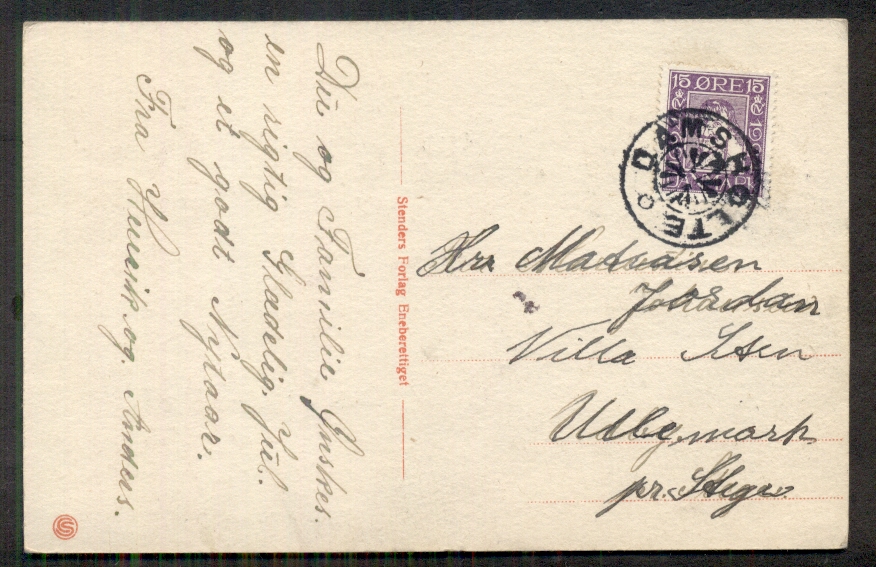 Du og Familie Ønskes.
en rigtig Glædelig Jul.
og et godt Nytaar.
Fra Henrik og Anders.
Stenders Forlag Eneberettiget
15 ØRE 15
DAMSHOLTE
Hrr Madsasen
Villa Sten
Udbymark
pr. Stege